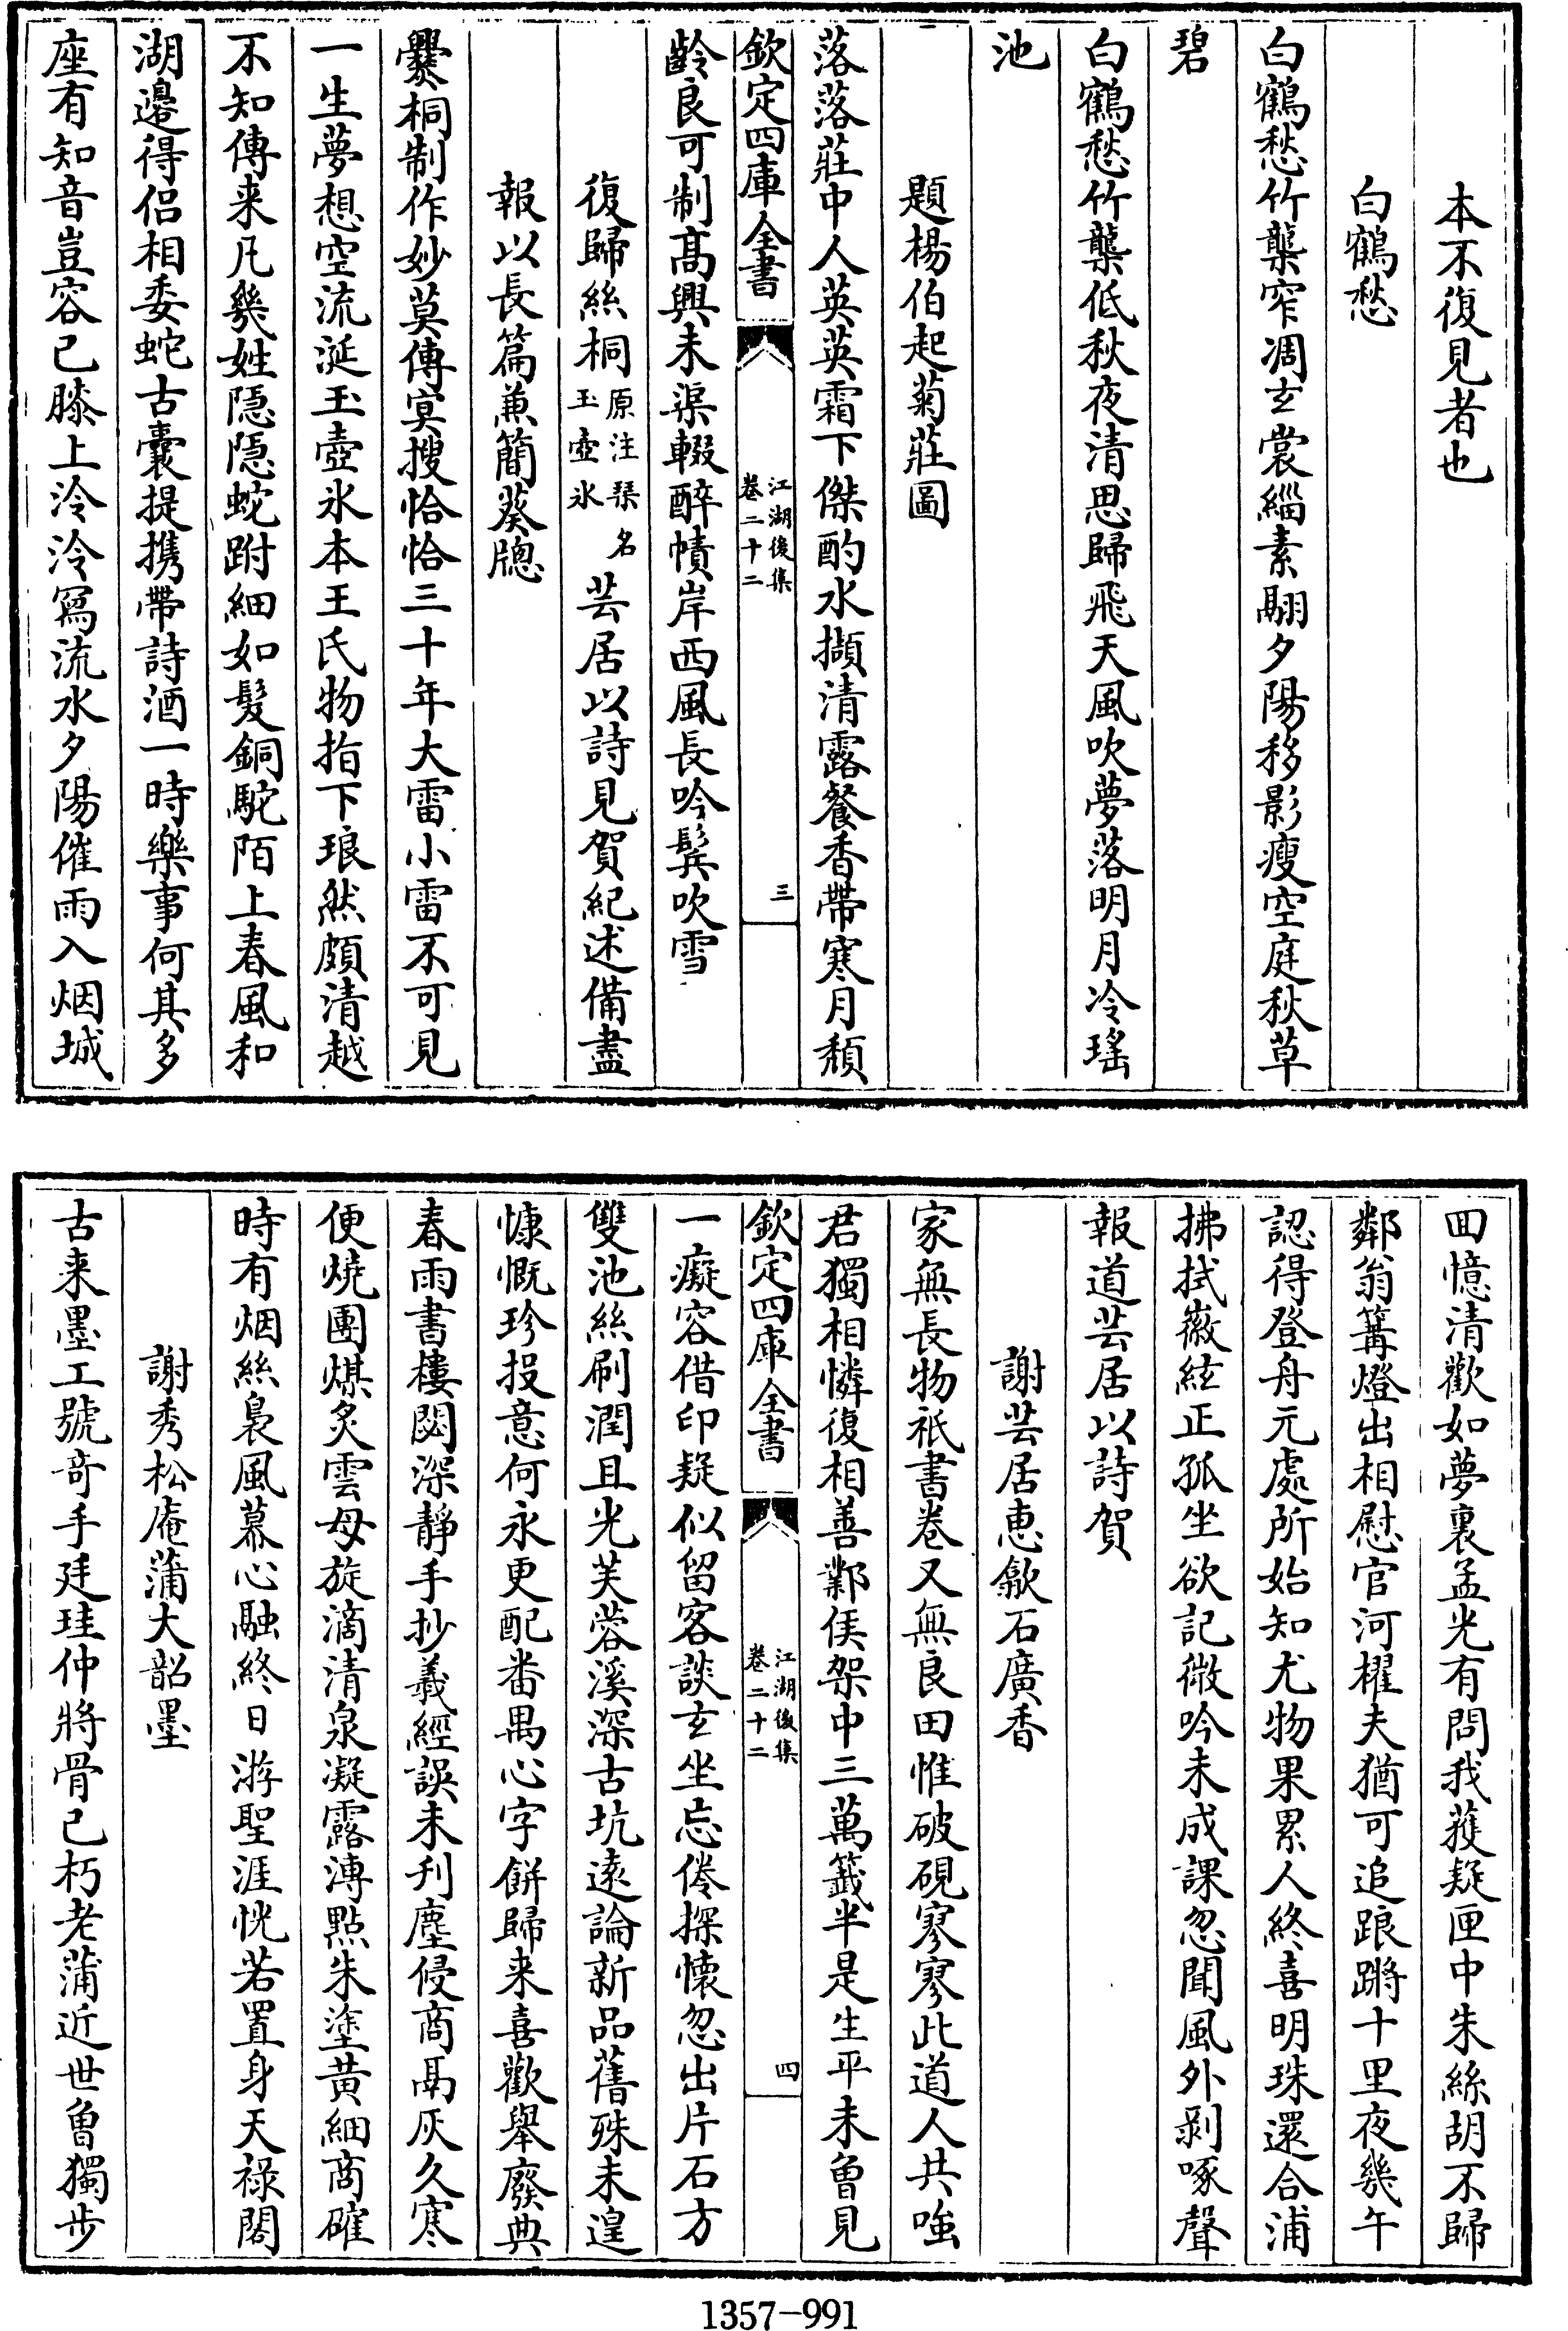 本不復見者也
白鶴愁
白鶴愁竹櫱窄凋玄裳緇素翮夕陽移影瘦空庭秋草
碧
白鶴愁竹櫱低秋夜清思歸飛天風吹夢落明月冷瑤
池
題楊伯起菊莊圖
落落莊中人英英霜下傑酌水擷清露餐香帶寒月頹
欽定四庫全書
江湖後集
卷二十二
三
齡良可制高興未渠輟醉幘岸西風長吟鬂吹雪
復歸絲桐原注琴名玉壺氷芸居以詩見賀紀述備盡
報以長篇兼簡葵牕
爨桐制作妙莫傳㝠搜恰恰三十年大雷小雷不可見
一生夢想空流涎玉壺氷本王氏物指下琅然頗清越
不知傳来凡幾姓隠隠蛇跗細如髮銅駝陌上春風和
湖邊得侣相委蛇古囊提携帶詩酒一時樂事何其多
座有知音豈容已膝上泠泠寫流水夕陽催雨入烟城
囬憶清歡如夢裏孟光有問我蒦疑匣中朱絲胡不歸
鄰翁篝燈出相慰官河櫂夫猶可追踉蹡十里夜幾午
認得登舟元處所始知尤物果累人終喜明珠還合浦
拂拭徽絃正孤坐欲記微吟未成課忽聞風外剥啄聲
報道芸居以詩賀
謝芸居恵歙石廣香
家無長物祇書巻又無良田惟破硯寥寥此道人共嗤
君獨相憐復相善鄴侯架中三萬籤半是生平未曾見
欽定四庫全書
江湖後集
卷二十二
四
一癡容借印疑似留客談玄坐忘倦探懷忽出片石方
雙池絲刷潤且光芙蓉溪深古坑逺論新品舊殊未遑
慷慨珍投意何永更配番禺心字餅歸来喜歡舉廢典
春雨書樓閟深靜手抄羲經誤未刋塵侵商鬲灰久寒
便燒團煤炙雲母旋滴清泉凝露漙點朱塗黄細商確
時有烟絲裊風幕心融終日游聖涯恍若置身天禄閣
謝秀松庵蒲大韶墨
古来墨工號竒手廷珪仲將骨已朽老蒲近世曾獨步
1357-991